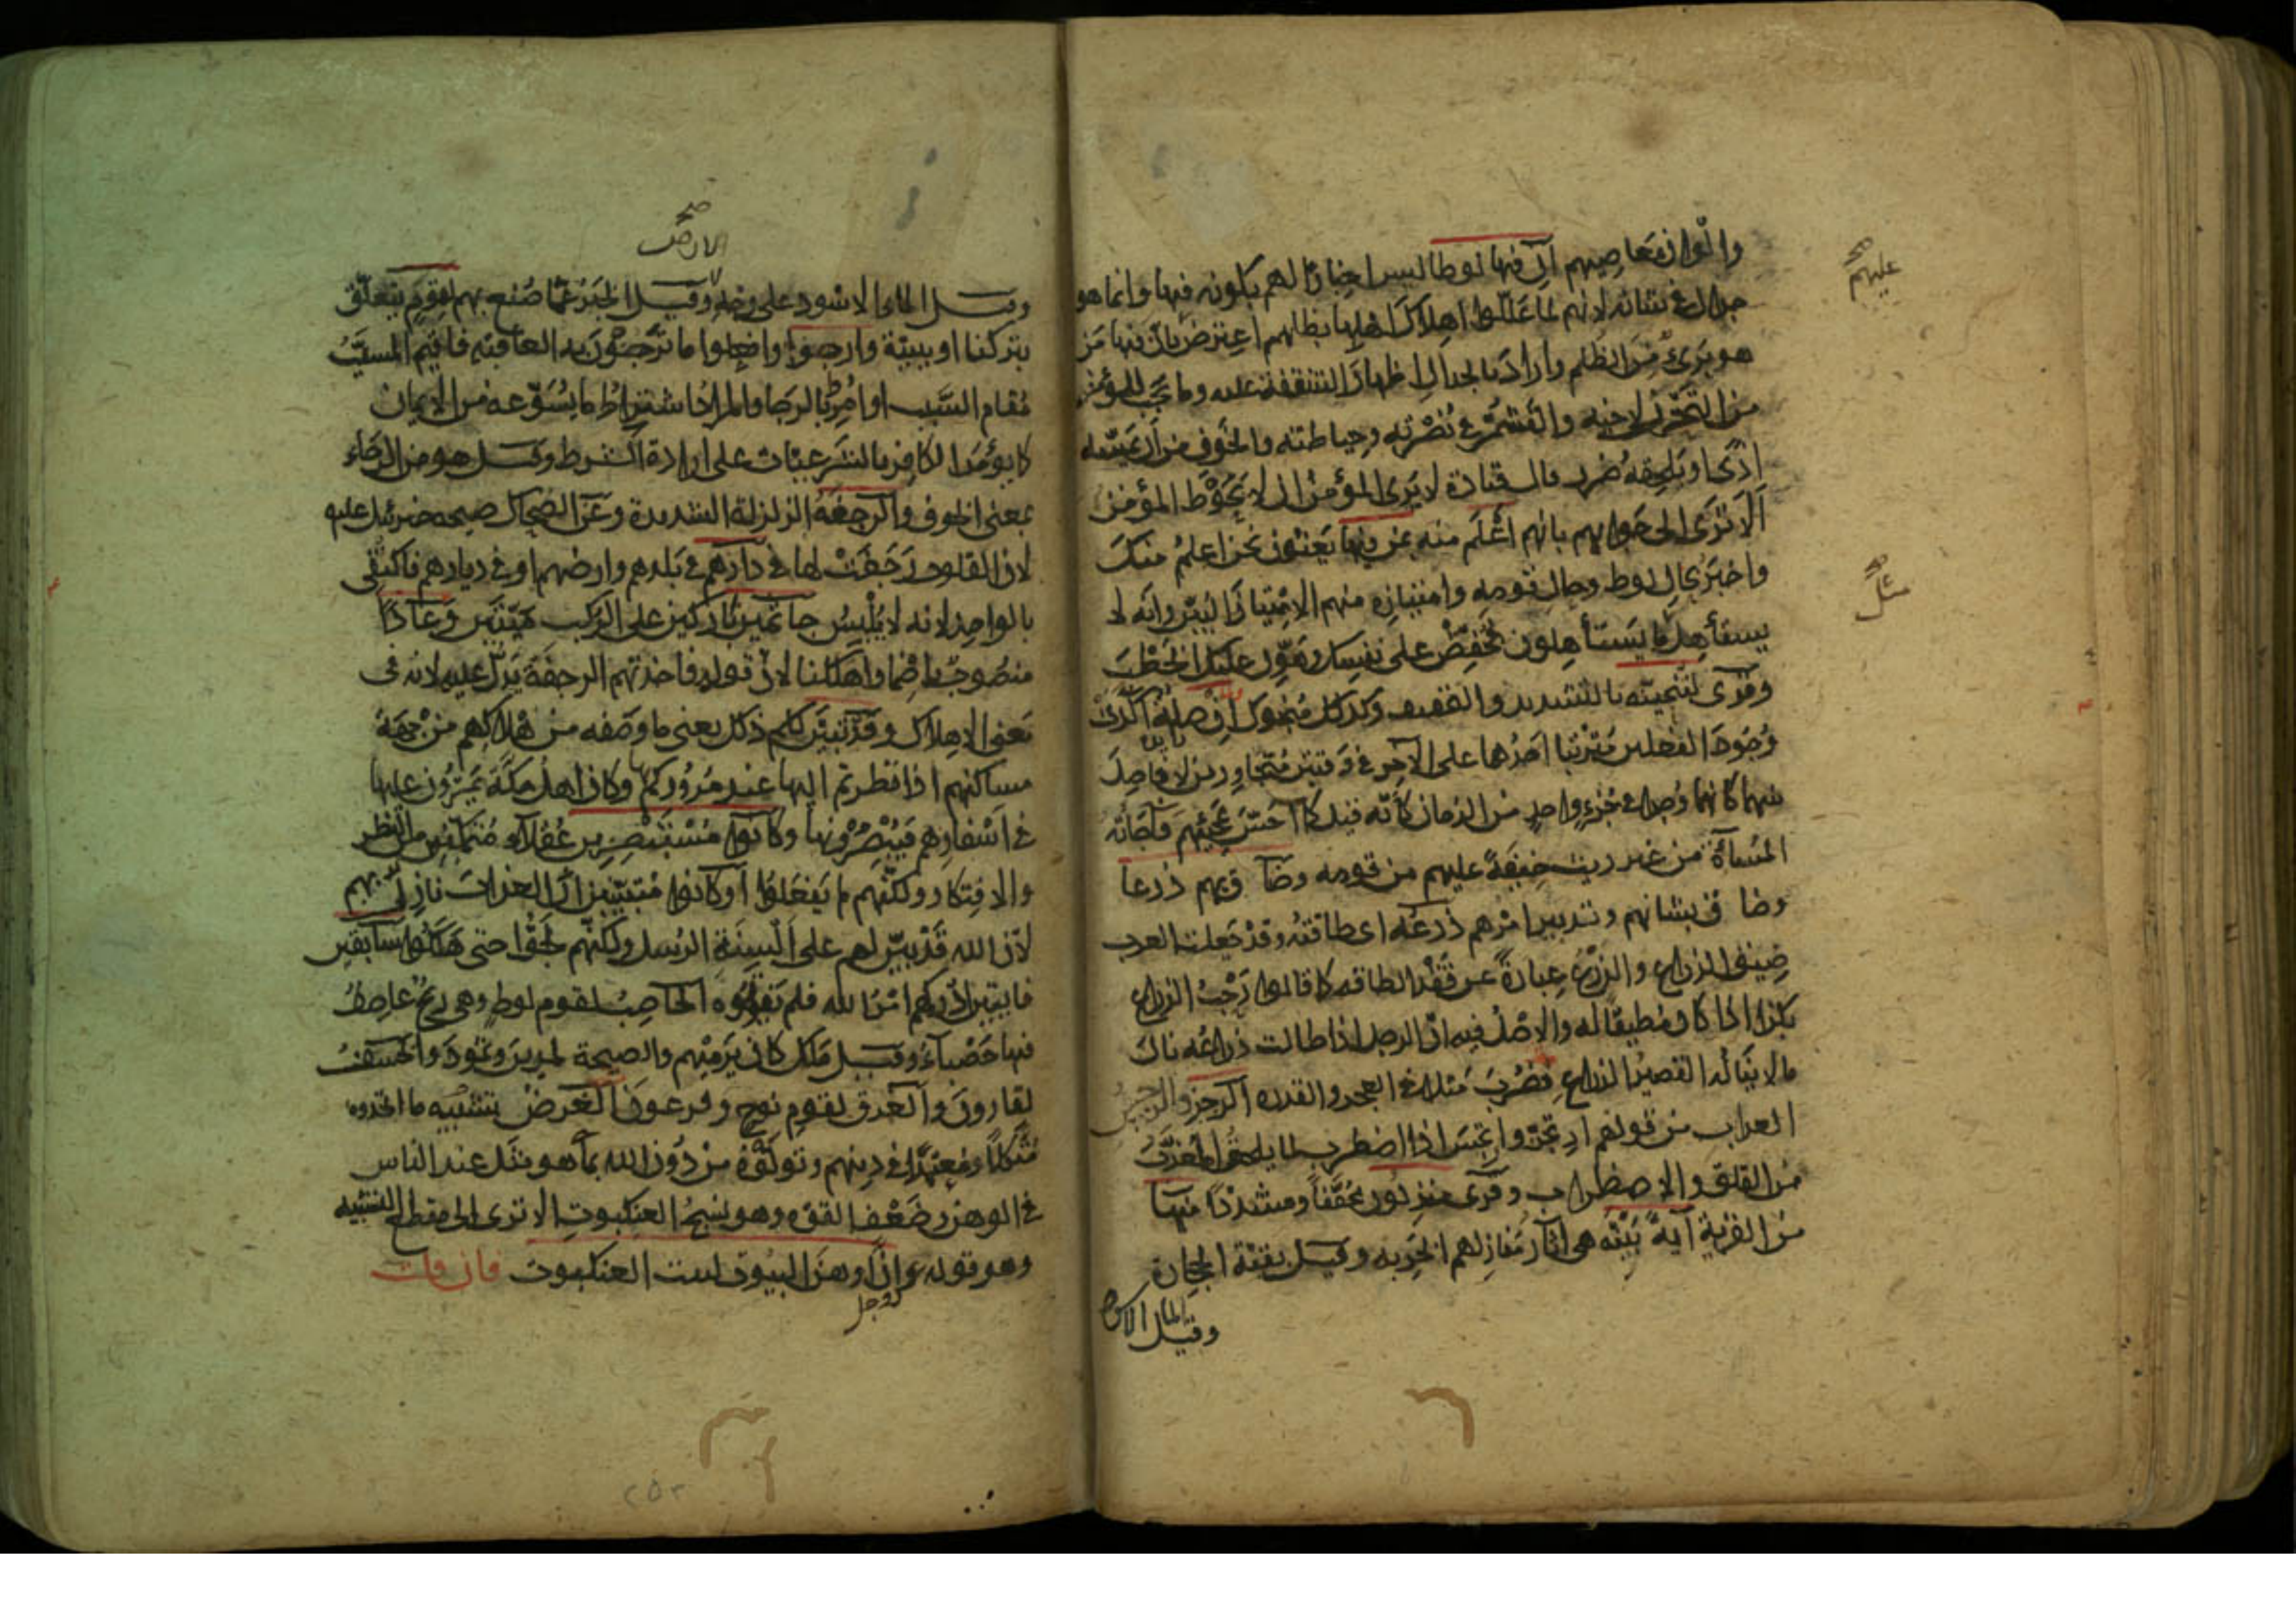 وانواع معاصيهم إن فيها لوطا ليس اخبارا لهم بكونه فيها وانما هو
جدال في شانه لانهم لما عللوا اهلاك اهلها بظلمهم اعترض بان فيها من
هو برئ من الظلم واراد بالجدال اظهار الشفقة عليه وما يجب للمؤمن
من التحزن لاخيه والتشمر في نصرته وحياطته والخوف من ان يمسه
اذى او يلحقه ضرر قال قتادة لا يرى المؤمن ان لا يحوط المؤمن
ألا ترى الى جوابهم بانهم اعلم منه بمن فيها يعنون نحن اعلم منك
واخبر بحال لوط وحال قومه وامتيازه منهم الامتياز البين وانه لا
يستأهل ما يستأهلون فخفض على نفسك وهون عليك الخطب
وقرئ لننجينه بالتشديد والتخفيف وكذلك منجوك أن صلة اكدت
وجود الفعلين مترتبا احدهما على الآخر في وقتين متجاورين لا فاصل
بينهما كانهما وجدا في جزء واحد من الزمان كأنه قيل كما احس بمجيئهم فاجأته
المساة من غير ريث خيفة عليهم من قومه وضاق بهم ذرعا
وضاق بشانهم وتدبير امرهم ذرعه اى طاقته وقد جعلت العرب
ضيق الذراع والذرع عبارة عن فقد الطاقة كما قالوا رحب الذراع
بكذا اذا كان مطيقا له والاصل فيه ان الرجل اذا طالت ذراعه نال
ما لا يناله القصير الذراع فضرب مثلا في العجز والقدرة الرجز والرجس
العذاب من قولهم ارتجز وارتجس اذا اضطرب لما يلحق المعذب
من القلق والاضطراب وقرئ منزلون مخففا ومشددا منها
من القرية آية بينة هى آثار منازلهم الخربة وقيل بقية الحجارة
وقيل الماء الاس
عليهم صح
مثل صح
الارض صح
وقيل الماء الاسود على وجه وقيل الخبر عما صنع بهم لقوم يتعلق
بتركنا او ببينة وارجوا وافعلوا ما ترجون به العاقبة فاقيم المسبب
مقام السبب او امروا بالرجا والمراد اشتراط ما يسوغه من الايمان
كما يؤمر الكافر بالشرعيات على ارادة الشرط وقيل هو من الرجاء
بمعنى الخوف والرجفة الزلزلة الشديدة وعن الضحاك صيحة جبرئيل عليه
لان القلوب رجفت لها في دارهم في بلدهم وارضهم او في ديارهم فاكتفى
بالواحد لانه لا يلبس جاثمين باركين على الركب ميتين وعادا
منصوب باضمار اهلكنا لان قوله فاخذتهم الرجفة يدل عليه لانه في
معنى الاهلاك وقد تبين لكم ذلك يعنى ما وصفه من هلاكهم من جهة
مساكنهم اذا نظرتم اليها عند مروركم بها وكان اهل مكة يمرون عليها
في اسفارهم فيبصرونها وكانوا مستبصرين عقلاء متمكنين من النظر
والافتكار ولكنهم لم يفعلوا او كانوا متبينين أن العذاب نازل بهم
لان الله قد بين لهم على السنة الرسل ولكنهم لجوا حتى هلكوا سابقين
فايتين ادركهم امر الله فلم يفوتوه الحاصب لقوم لوط وهى ريح عاصف
فيها حصباء وقيل ملك كان يرميهم والصيحة لمدين وثمود والخسف
لقارون والغرق لقوم نوح وفرعون الغرض تشبيه ما اتخذوه
متكلا ومعتمدا في دينهم وتولوه من دون الله بما هو مثل عند الناس
في الوهن وضعف القوة وهو نسج العنكبوت الا ترى الى مقطع التشبيه
وهو قوله عز وجل وان اوهن البيوت لبيت العنكبوت فان قلت